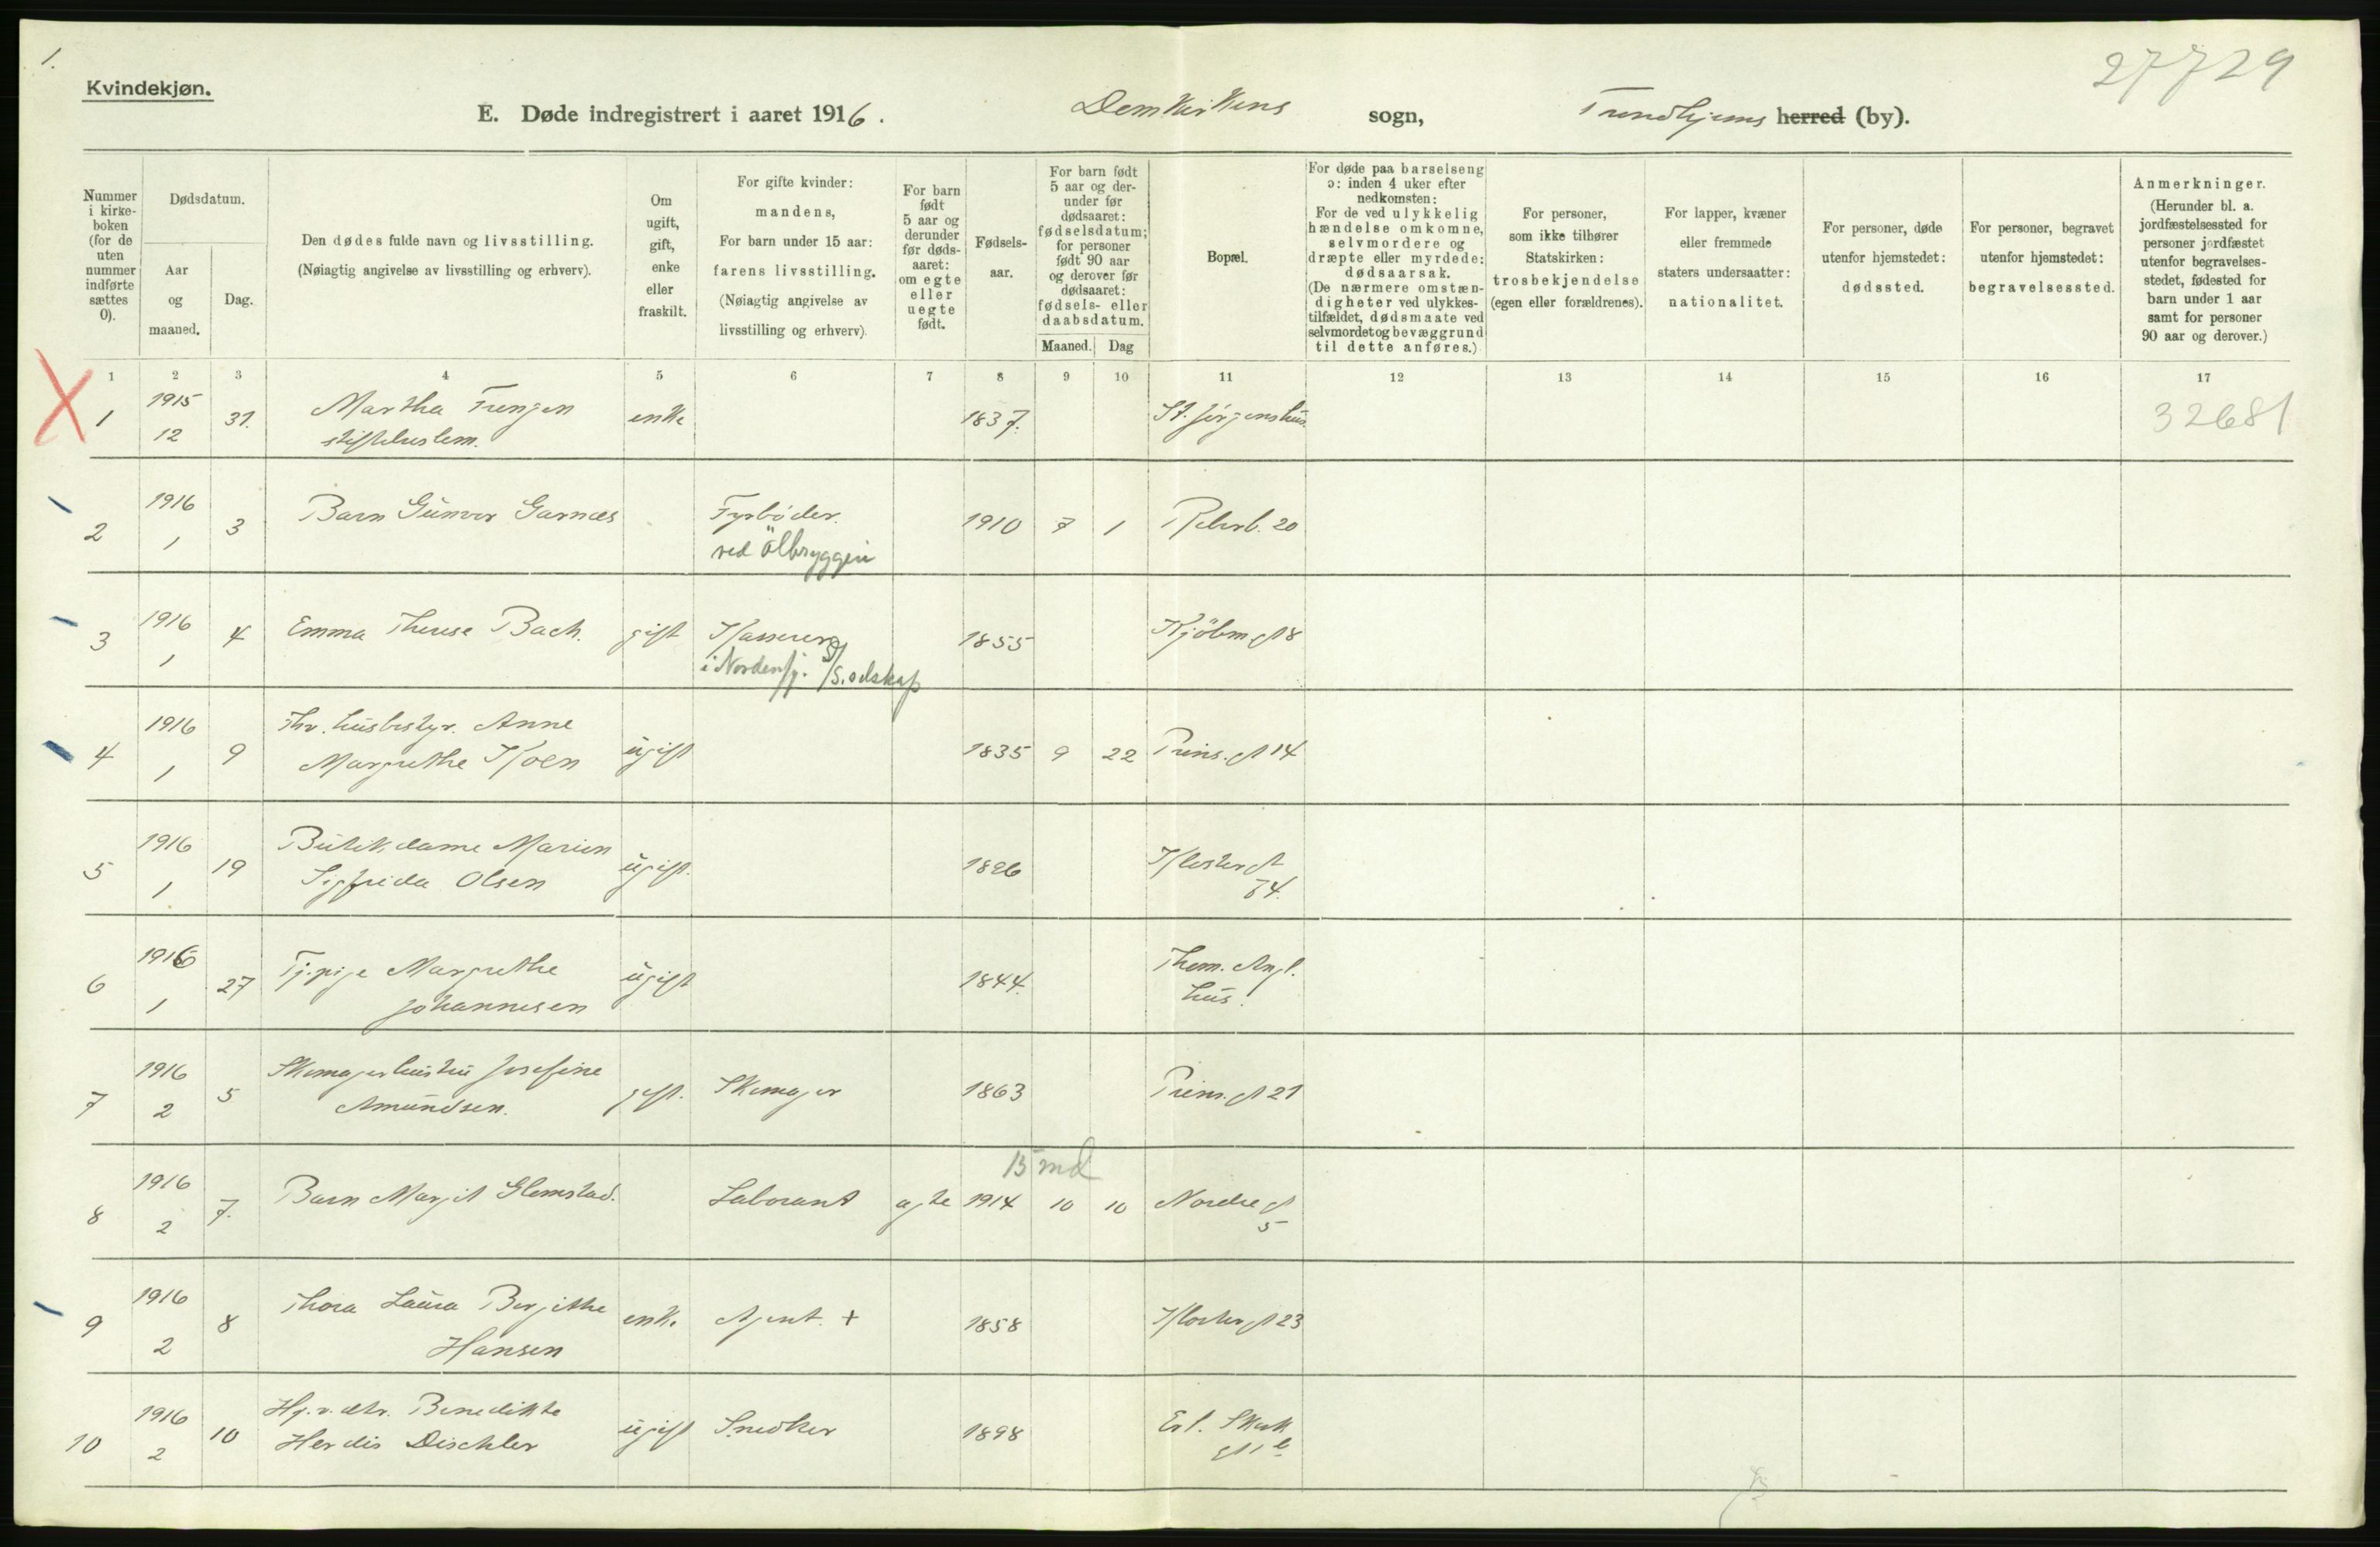 1.
27729
Kvindekjøn.
E. Døde indregistrert i aaret 1916. Domkirkens sogn, Trondhjems herred (by).
Nummer i kirke-boken (for de uten nummer indførte sættes 0).
Dødsdatum.
Aar og maaned.
Dag.
Den dødes fulde navn og livsstilling.
(Nøiagtig angivelse av livsstilling og erhverv).
Om ugift, gift, enke eller fraskilt.
For gifte kvinder: mandens,
For barn under 15 aar: farens livsstilling.
(Nøiagtig angivelse av livsstilling og erhverv).
For barn født 5 aar og derunder før døds-aaret: om egte eller uegte født.
Fødsels-aar.
For barn født 5 aar og der-under før dødsaaret: fødselsdatum; for personer født 90 aar og derover før dødsaaret: fødsels- eller daabsdatum.
Maaned. Dag
Bopæl.
For døde paa barselseng ɔ: inden 4 uker efter nedkomsten:
For de ved ulykkelig hændelse omkomne, selvmordere og dræpte eller myrdede: dødsaarsak.
(De nærmere omstæn-digheter ved ulykkes-tilfældet, dødsmaate ved selvmordet og bevæggrund til dette anføres.)
For personer, som ikke tilhører Statskirken: trosbekjendelse (egen eller forældrenes).
For lapper, kvæner eller fremmede staters undersaatter: nationalitet.
For personer, døde utenfor hjemstedet: dødssted.
For personer, begravet utenfor hjemstedet: begravelsessted.
Anmerkninger.
(Herunder bl. a. jordfæstelsessted for personer jordfæstet utenfor begravelses-stedet, fødested for barn under 1 aar samt for personer 90 aar og derover.)
1 2 3 4 5 6 7 8 9 10 11 12 13 14 15 16 17
1 1915 12 31. Martha enke 1837. St. Jørgenshus. 32681
2 1916 1 3 Barn Gunvor Garnæs Fyrbøder. ved Ölbryggeri 1910 7 1 20
3 1916 1 4 Emma Therese Bach. gift Kasserer i Nordenfj. D/S.selskap 1855 Kjöbm.gt 8
4 1916 1 9 Fhv. husbestyr. Anne
Margrethe Koen ugift 1835 9 22 Prins.gt 14
5 1916 1 19 Butikdame Marien
Sigfrida Olsen ugift. 1896 Klostergt
6 1916 1 27 Tj.pige Margrethe
Johannesen ugift 1844. Thom. Ang.
hus.
7 1916 2 5 Skomagerhustru Josefine
Amundsen. gift. Skomager 1863 Prins.gt 21
15 md
8 1916 2 7. Barn Margit Glemstad. Laborant egte 1914 10 10 Nordre gt
5
9 1916 2 8 Thora Laura Bergithe
Hansen enke Agent. + 1858 Klostergt 23
10 1916 2 10 Hj.v. dtr. Benedikte
Herdis Dischler ugift Snedker 1898 Erl. Skak
gt 1 b